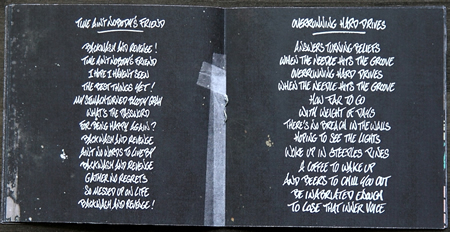 TIME AINT NOBODY'S FRIEND
BACKWASH AND REVENGE!
TIME AINT NOBODY'S FRIEND
I HOPE I HAVEN'T SEEN
THE BEST THINGS YET!
MY STOMACH TURNED BLOODY GRAY
WHAT'S THE PASSWORD
FOR BEING HAPPY AGAIN?
BACKWASH AND REVENGE
AINT NO WORDS TO LIVE BY
BACKWASH AND REVENGE
GATHER NO REGRETS
SO MESSED UP ON LIFE
BACKWASH AND REVENGE!
OVERRUNNING HARD DRIVES
ANSWERS TURNING BELIEFS
WHEN THE NEEDLE HITS THE GROOVE
OVERRUNNING HARD DRIVES
WHEN THE NEEDLE HITS THE GROOVE
HOW FAR TO GO
WITH WEIGHT OF DAYS
THERE'S NO BREACH IN THE WALLS
HOPING TO SEE THE LIGHTS
WOKE UP IN STEEPLES RUINS
A COFFEE TO WAKE UP
AND BEERS TO CHILL YOU OUT
BE INABRIATED ENOUGH
TO LOSE THAT INNER VOICE